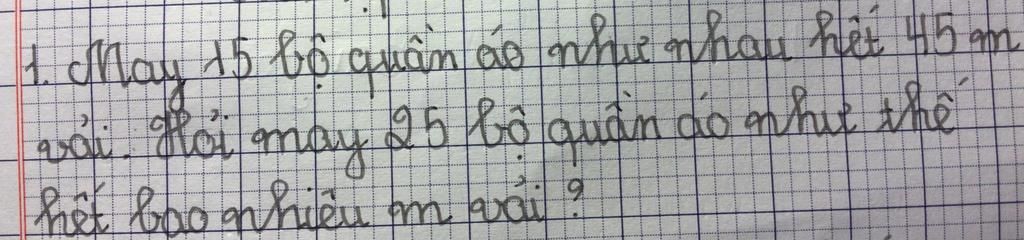 1. May 15 bộ quần áo như nhau hết 45 m
vải. Hỏi may 25 bộ quần áo như thế
hết bao nhiêu m vải ?